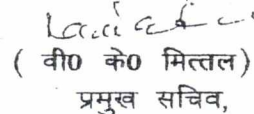 ( वी0 के0 मित्तल)
प्रमुख सचिव,